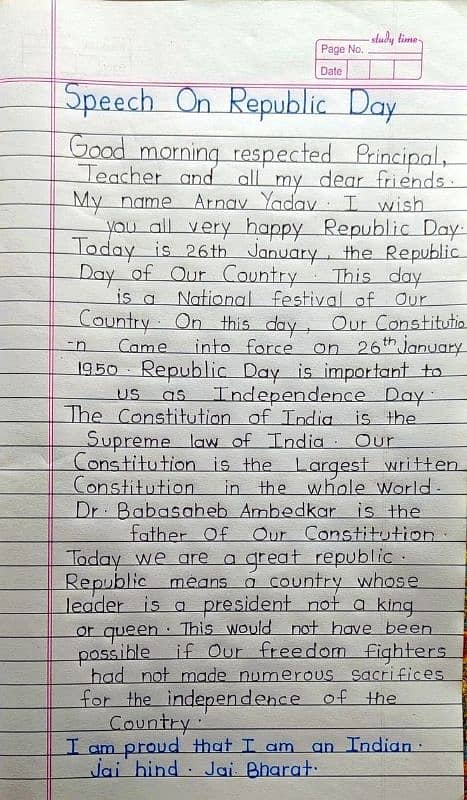 study time
Page No.
Date
Speech On Republic Day
Good morning respected Principal,
Teacher and all my dear friends.
My name Arnav Yadav. I wish
you all very happy Republic Day.
Today is 26th January, the Republic
Day of Our Country. This day
is a National festival of Our
Country. On this day, Our Constitutio
-n Came into force on 26th January
1950. Republic Day is important to
us as Independence Day.
The Constitution of India is the
Supreme law of India. Our
Constitution is the Largest written
Constitution in the whole World.
Dr. Babasaheb Ambedkar is the
father Of Our Constitution.
Today we are a great republic.
Republic means a country whose
leader is a president not a king
or queen. This would not have been
possible if Our freedom fighters
had not made numerous sacrifices
for the independence of the
Country.
I am proud that I am an Indian.
Jai hind. Jai Bharat.